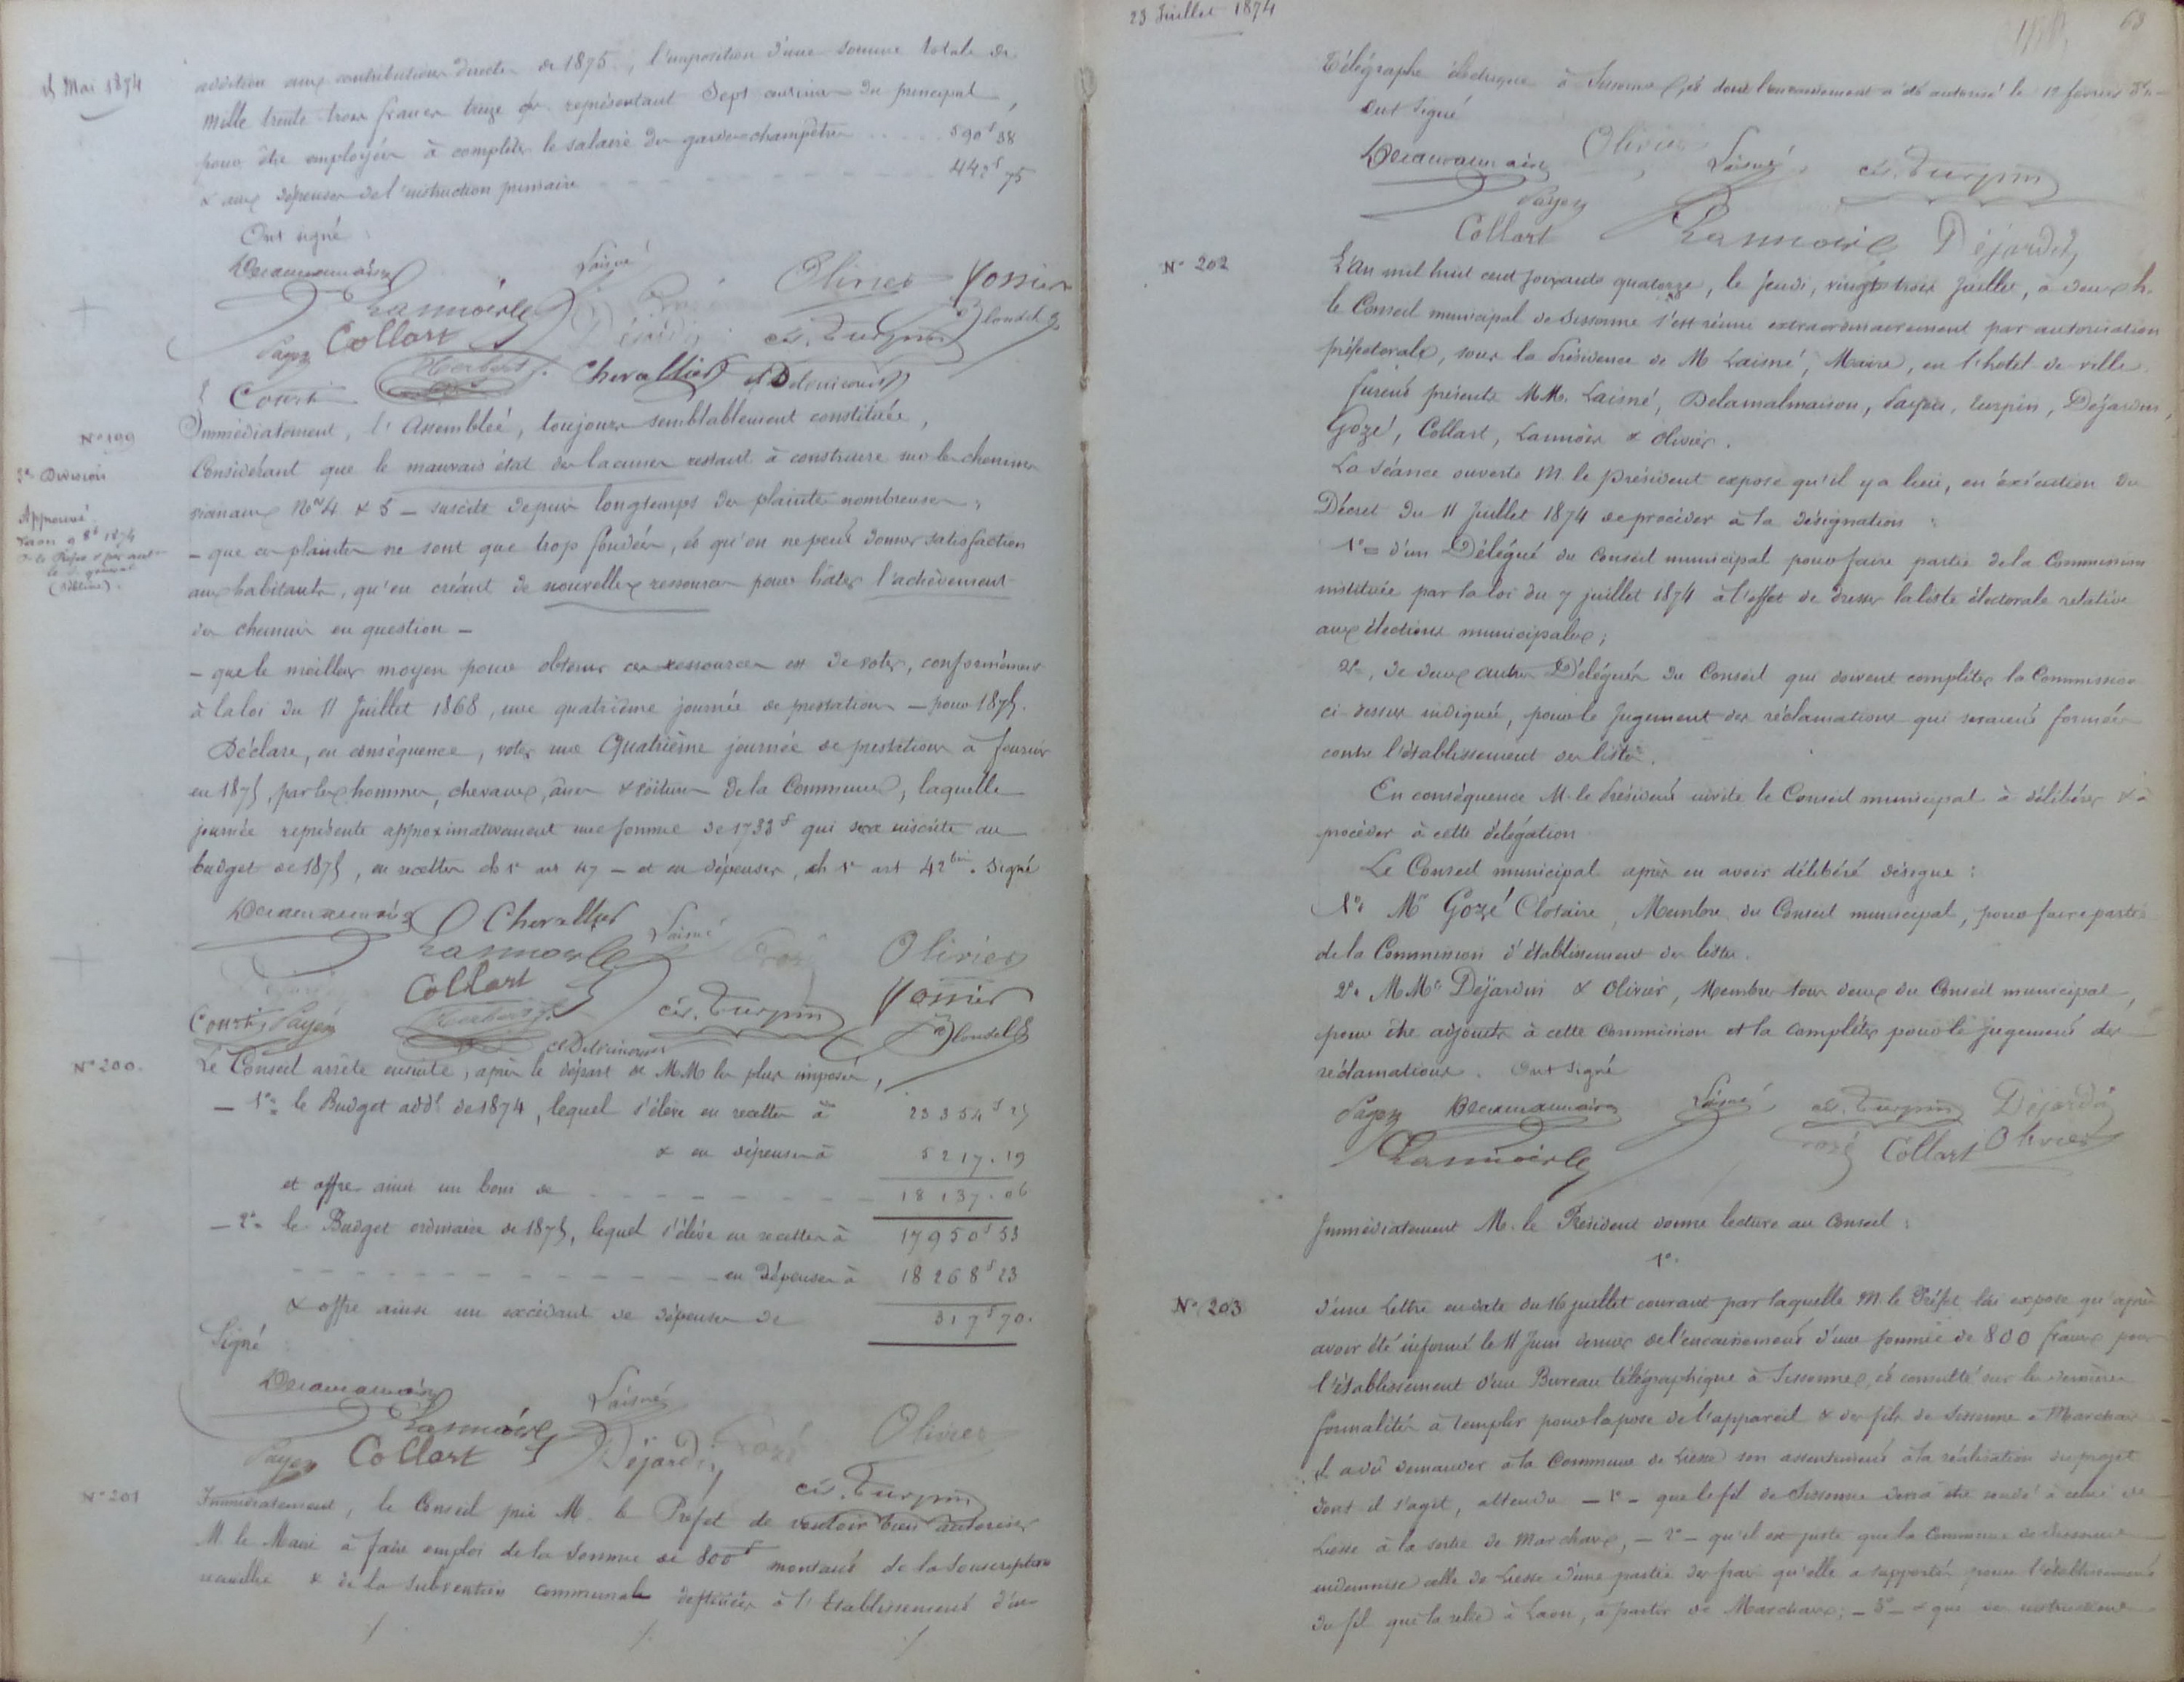 Mai 1874
addition aux contributions directes de 1875, l'imposition d'une somme totale de
mille trente trois francs treize représentant sept centimes du principal,
pour être employée à compléter le salaire des gardes-champêtres ..... 590f 38
& aux dépenses de l'instruction primaire - - - - - - - - - - - 442f 75
Ont signé :
Laisné
Olivier
Lannoie
Collart
Payen
Déjardin
cis. Turpin
Blondel
Herbert
Chevallier
Courti
N° 199
Immédiatement, l'Assemblée, toujours semblablement constituée,
3e Division
Considérant que le mauvais état des lacunes restant à construire sur les chemins
vicinaux Nos 4 & 5 — suscite depuis longtemps des plaintes nombreuses;
Approuvé
Laon 9 8bre 1874
— que ces plaintes ne sont que trop fondées, et qu'on ne peut donner satisfaction
aux habitants, qu'en créant de nouvelles ressources pour hâter l'achèvement
des chemins en question —
— que le meilleur moyen pour obtenir ces ressources est de voter, conformément
à la loi du 11 Juillet 1868, une quatrième journée de prestation — pour 1875.
Déclare, en conséquence, voter une Quatrième journée de prestations à fournir
en 1875, par les hommes, chevaux, ânes & voitures de la Commune, laquelle
journée représente approximativement une somme de 1733f qui sera inscrite au
budget de 1875, en recettes ch 1er art 47 — et en dépenses, ch 1er art 42bis. Signé
Chevallier
Laisné
Lannoie
Gozé
Olivier
Collart
Courti
Payen
Herbert
cis. Turpin
Blondel
N° 200.
Le Conseil arrête ensuite, après le départ de MM les plus imposés,
— 1° le Budget addl de 1874, lequel s'élève en recettes à 23354f 25
& en dépenses à 5217.19
et offre ainsi un boni de - - - - - - - 18137.06
— 2° le Budget ordinaire de 1875, lequel s'élève en recettes à 17950f 53
- - - - - - - - - - - - en dépenses à 18268f 23
& offre ainsi un excédant de dépenses de 317f 70.
Signé :
Laisné
Lannoie
Payen Collart
Déjardin
Gozé
Olivier
cis. Turpin
N° 201
Immédiatement, le Conseil prie M. le Préfet de vouloir bien autoriser
M. le Maire à faire emploi de la somme de 800f montant de la souscription
recueillie & de la subvention communale destinées à l'établissement d'un
23 Juillet 1874
63
Télégraphe électrique à Sissonne, et dont l'encaissement a été autorisé le 12 février
Ont signé
Olivier
Laisné
cis. Turpin
Payen
Collart
Lannoie
Déjardin
N° 202
L'an mil huit cent soixante quatorze, le Jeudi, vingt trois Juillet, à deux h.
le Conseil municipal de Sissonne s'est réuni extraordinairement par autorisation
préfectorale, sous la présidence de M Laisné, Maire, en l'hotel de ville.
furent présents MM. Laisné, Delamalmaison, Payen, Turpin, Déjardin,
Gozé, Collart, Lannois & Olivier.
La séance ouverte M. le Président expose qu'il y a lieu, en éxécution du
Décret du 11 Juillet 1874 de procéder à la désignation :
1° d'un Délégué du Conseil municipal pour faire partie de la Commission
instituée par la loi du 7 juillet 1874 à l'effet de dresser la liste électorale relative
aux élections municipales;
2°, de deux autres Délégués du Conseil qui doivent compléter la Commission
ci-dessus indiquée, pour le jugement des réclamations qui seraient formées
contre l'établissement des listes.
En conséquence M. le Président invite le Conseil municipal à délibérer & à
procéder à cette délégation
Le Conseil municipal après en avoir délibéré désigne :
1° Mr Gozé Clotaire, Membre du Conseil municipal, pour faire partie
de la Commission d'établissement des listes.
2° MMrs Déjardin & Olivier, Membres tous deux du Conseil municipal,
pour être adjoints à cette commission et la compléter pour le jugement des
réclamations. Ont signé
Payen
Laisné
cis. Turpin
Déjardin
Lannoie
Gozé
Collart
Olivier
Immédiatement M. le Président donne lecture au Conseil :
1°.
N° 203
d'une Lettre en date du 16 juillet courant par laquelle M. le Préfet lui expose qu'après
avoir été informé le 11 Juin dernier de l'encaissement d'une somme de 800 francs pour
l'établissement d'un Bureau télégraphique à Sissonne, et consulté sur les dernières
formalités à remplir pour la pose de l'appareil & des fils de Sissonne à Marchais
il a dû demander à la Commune de Liesse son assentiment à la réalisation du projet
dont il s'agit, attendu — 1° — que le fil de Sissonne devra être soudé à celui de
Liesse à la sortie de Marchais, — 2° — qu'il est juste que la Commune de Sissonne
indemnise celle de Liesse d'une partie des frais qu'elle a supportés pour l'établissement
du fil qui la relie à Laon, à partir de Marchais; — 3° — & que